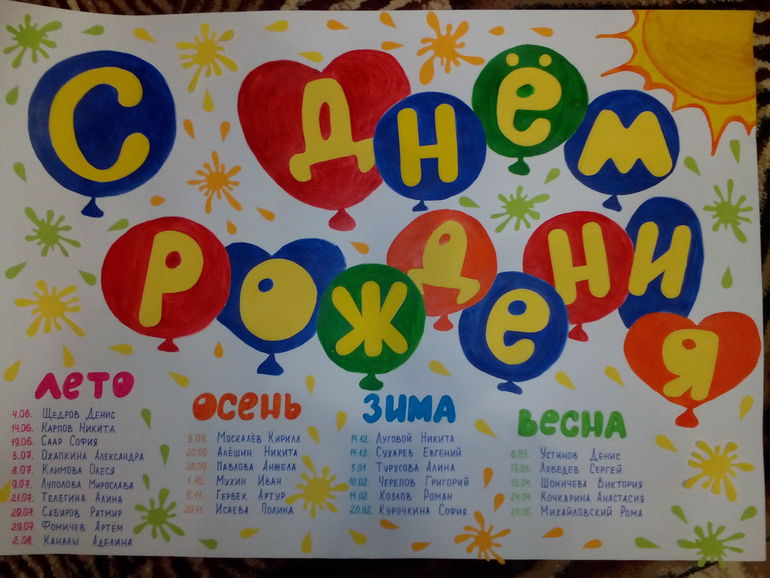 С ДНЁМ
РОЖДЕНИЯ
ЛЕТО
4.06. Щедров Денис
14.06. Карпов Никита
19.06. Саар София
3.07. Охапкина Александра
8.07. Климова Олеся
9.07. Луполова Мирослава
21.07. Телегина Алина
29.07. Сабиров Ратмир
29.07. Фомичев Артём
2.08. Каналы Аделина
ОСЕНЬ
9.09. Москалёв Кирилл
20.09. Алёшин Никита
26.09. Павлова Анжела
1.10. Мухин Иван
5.11. Гервек Артур
20.11. Исаева Полина
ЗИМА
14.12. Луговой Никита
14.12. Сухарев Евгений
5.01. Турусова Алина
10.02. Черепов Григорий
14.02. Козлов Роман
20.02. Курочкина София
ВЕСНА
Устинов Денис
Лебедев Сергей
Шоничева Виктория
Кочкарина Анастасия
Михайловский Рома